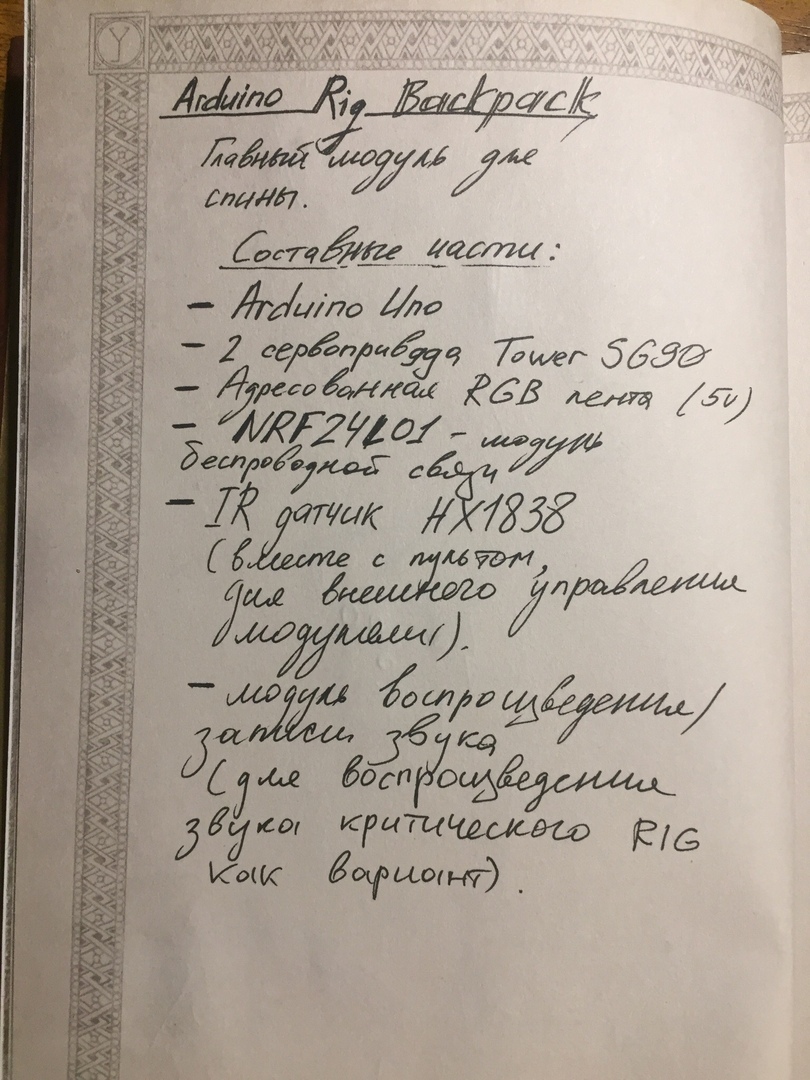 Arduino Rig Backpack
Главный модуль для
спины.
Составные части:
- Arduino Uno
- 2 сервопривода Tower SG90
- Адресованная RGB лента (5v)
- NRF24L01 - модуль
беспроводной связи
- IR датчик HX1838
(вместе с пультом,
для внешнего управления
модулем).
- модуль воспроизведения/
записи звука
(для воспроизведения
звука критического RIG
как вариант).